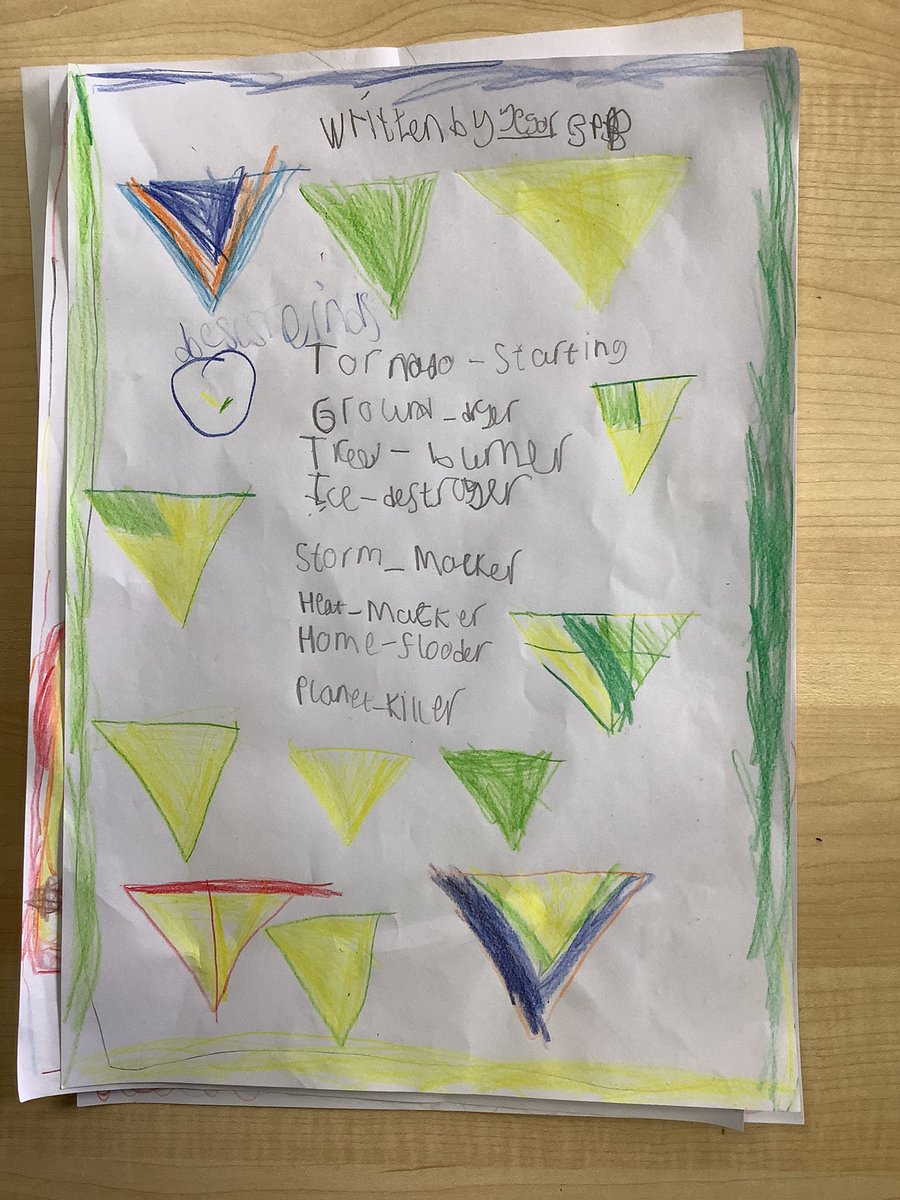 Written by
Tornado - Starting
Ground_dryer
Tree - burner
Ice-destroyer
Storm_Macker
Heat-Macker
Home-flooder
Planet_Killer